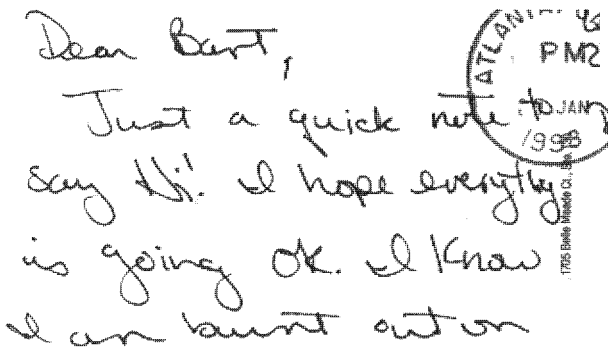 Dear Bart,
Just a quick note to
say Hi! I hope everythg
is going OK. I know
I am burnt out on
ATLANTA
PM2
JAN
1998
1705 Belle Meade Ct., Ste.